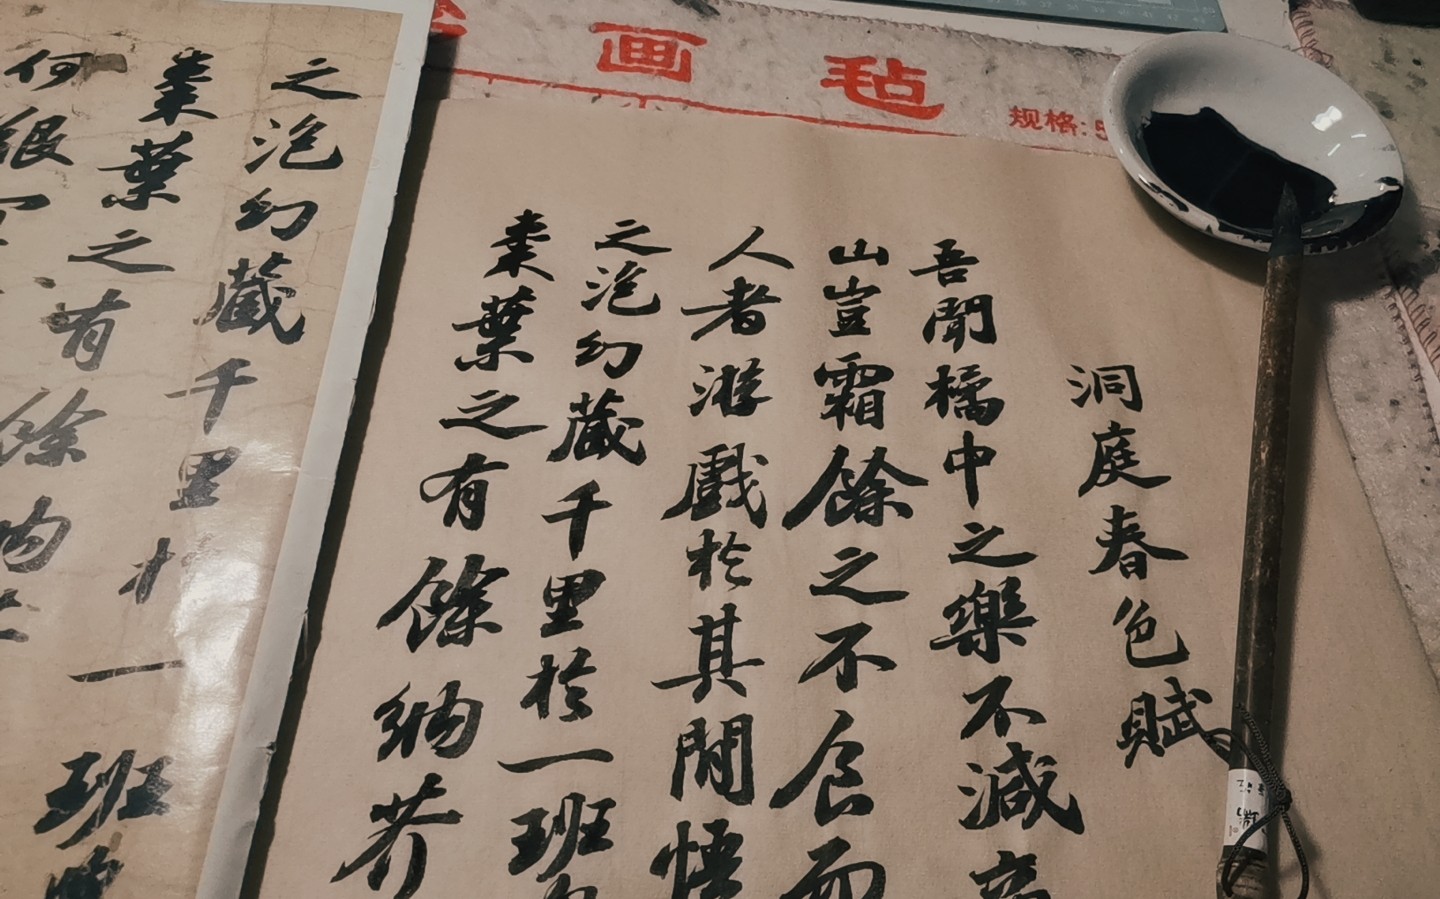 画毡
规格:5
洞庭春色賦
吾聞橘中之樂不減商
山豈霜餘之不食而
人者游戲於其間悟
之泡幻藏千里於一班
棗葉之有餘納芥
之泡幻藏千里於一班
棗葉之有餘納芥
何